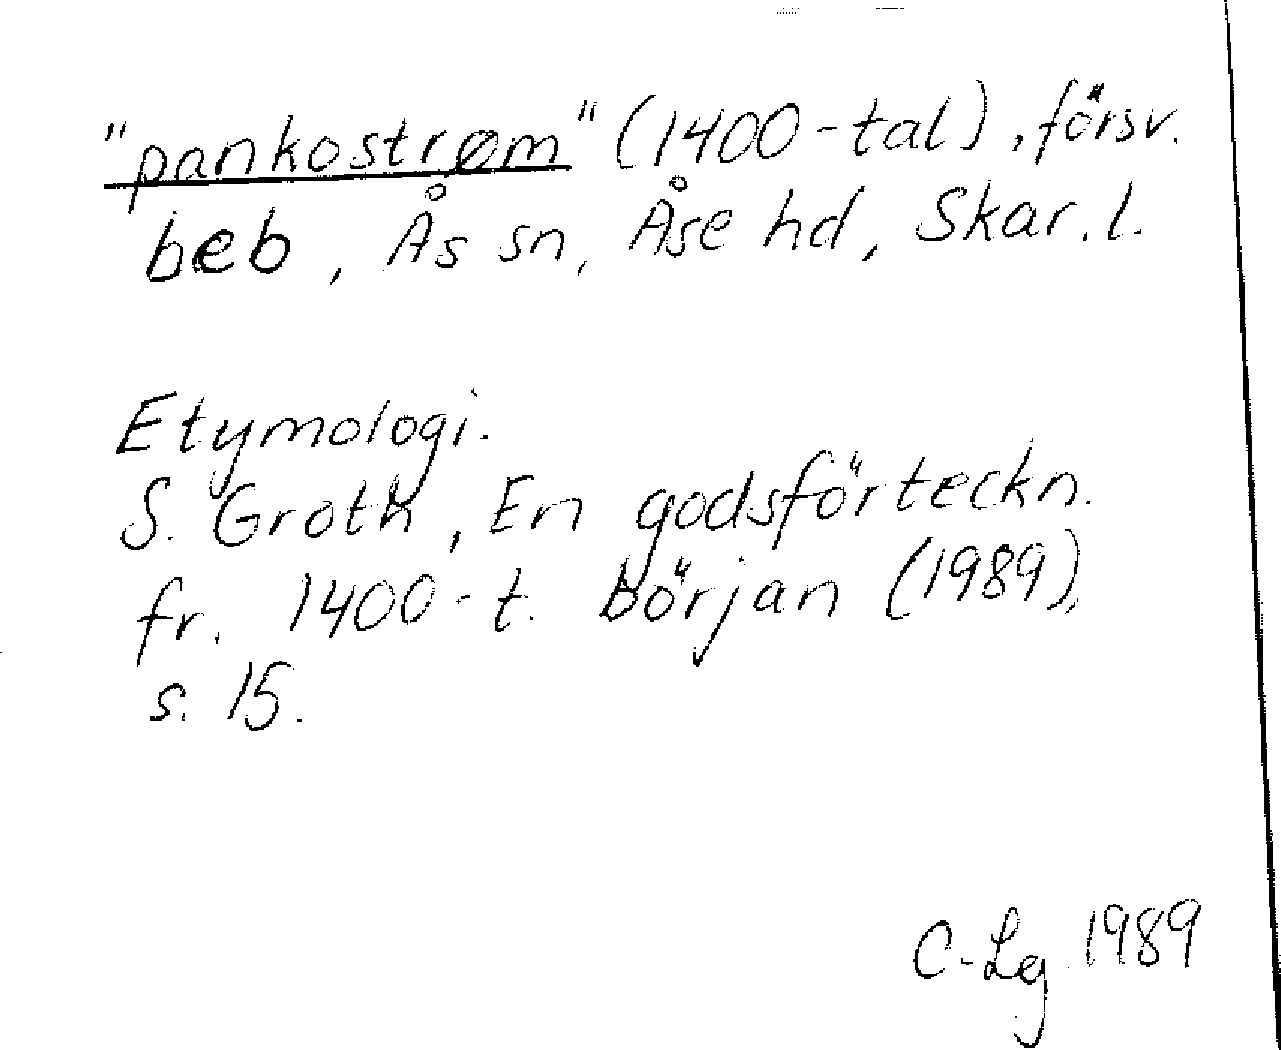 "pankostrøm" (1400-tal), försv.
beb, Ås sn, Åse hd, Skar. l.
Etymologi.
S. Groth, En godsförteckn.
fr. 1400-t. början (1989),
s. 15.
C-Lg 1989